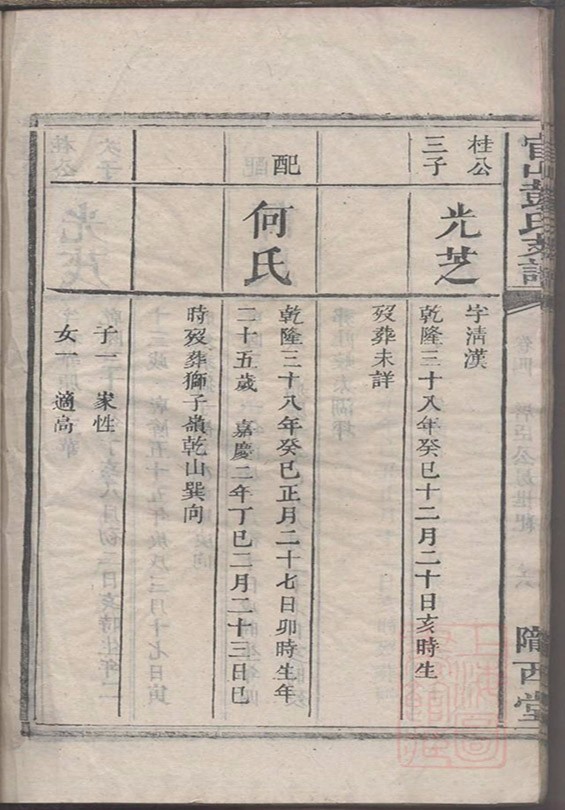 官山彭氏支譜
隴西堂
桂公
三子
光芝
字清漢
乾隆三十八年癸巳十二月二十日亥時生
歿葬未詳
配
何氏
乾隆三十八年癸巳正月二十七日卯時生年
二十五歲 嘉慶二年丁巳二月二十三日巳
時歿葬獅子嶺乾山巽向
子一 家性
女一 適高